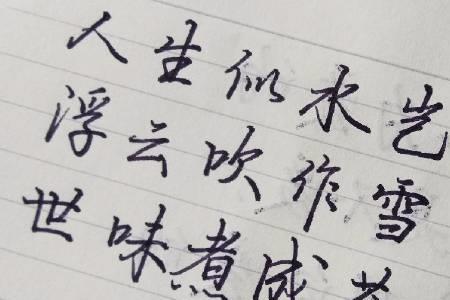 人生似水岂
浮云吹作雪
世味煮成